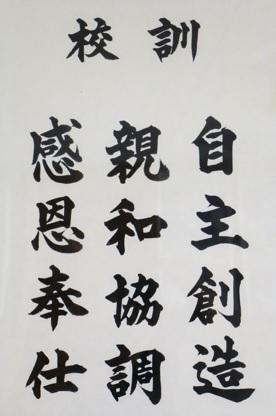 校訓
自主創造
親和協調
感恩奉仕